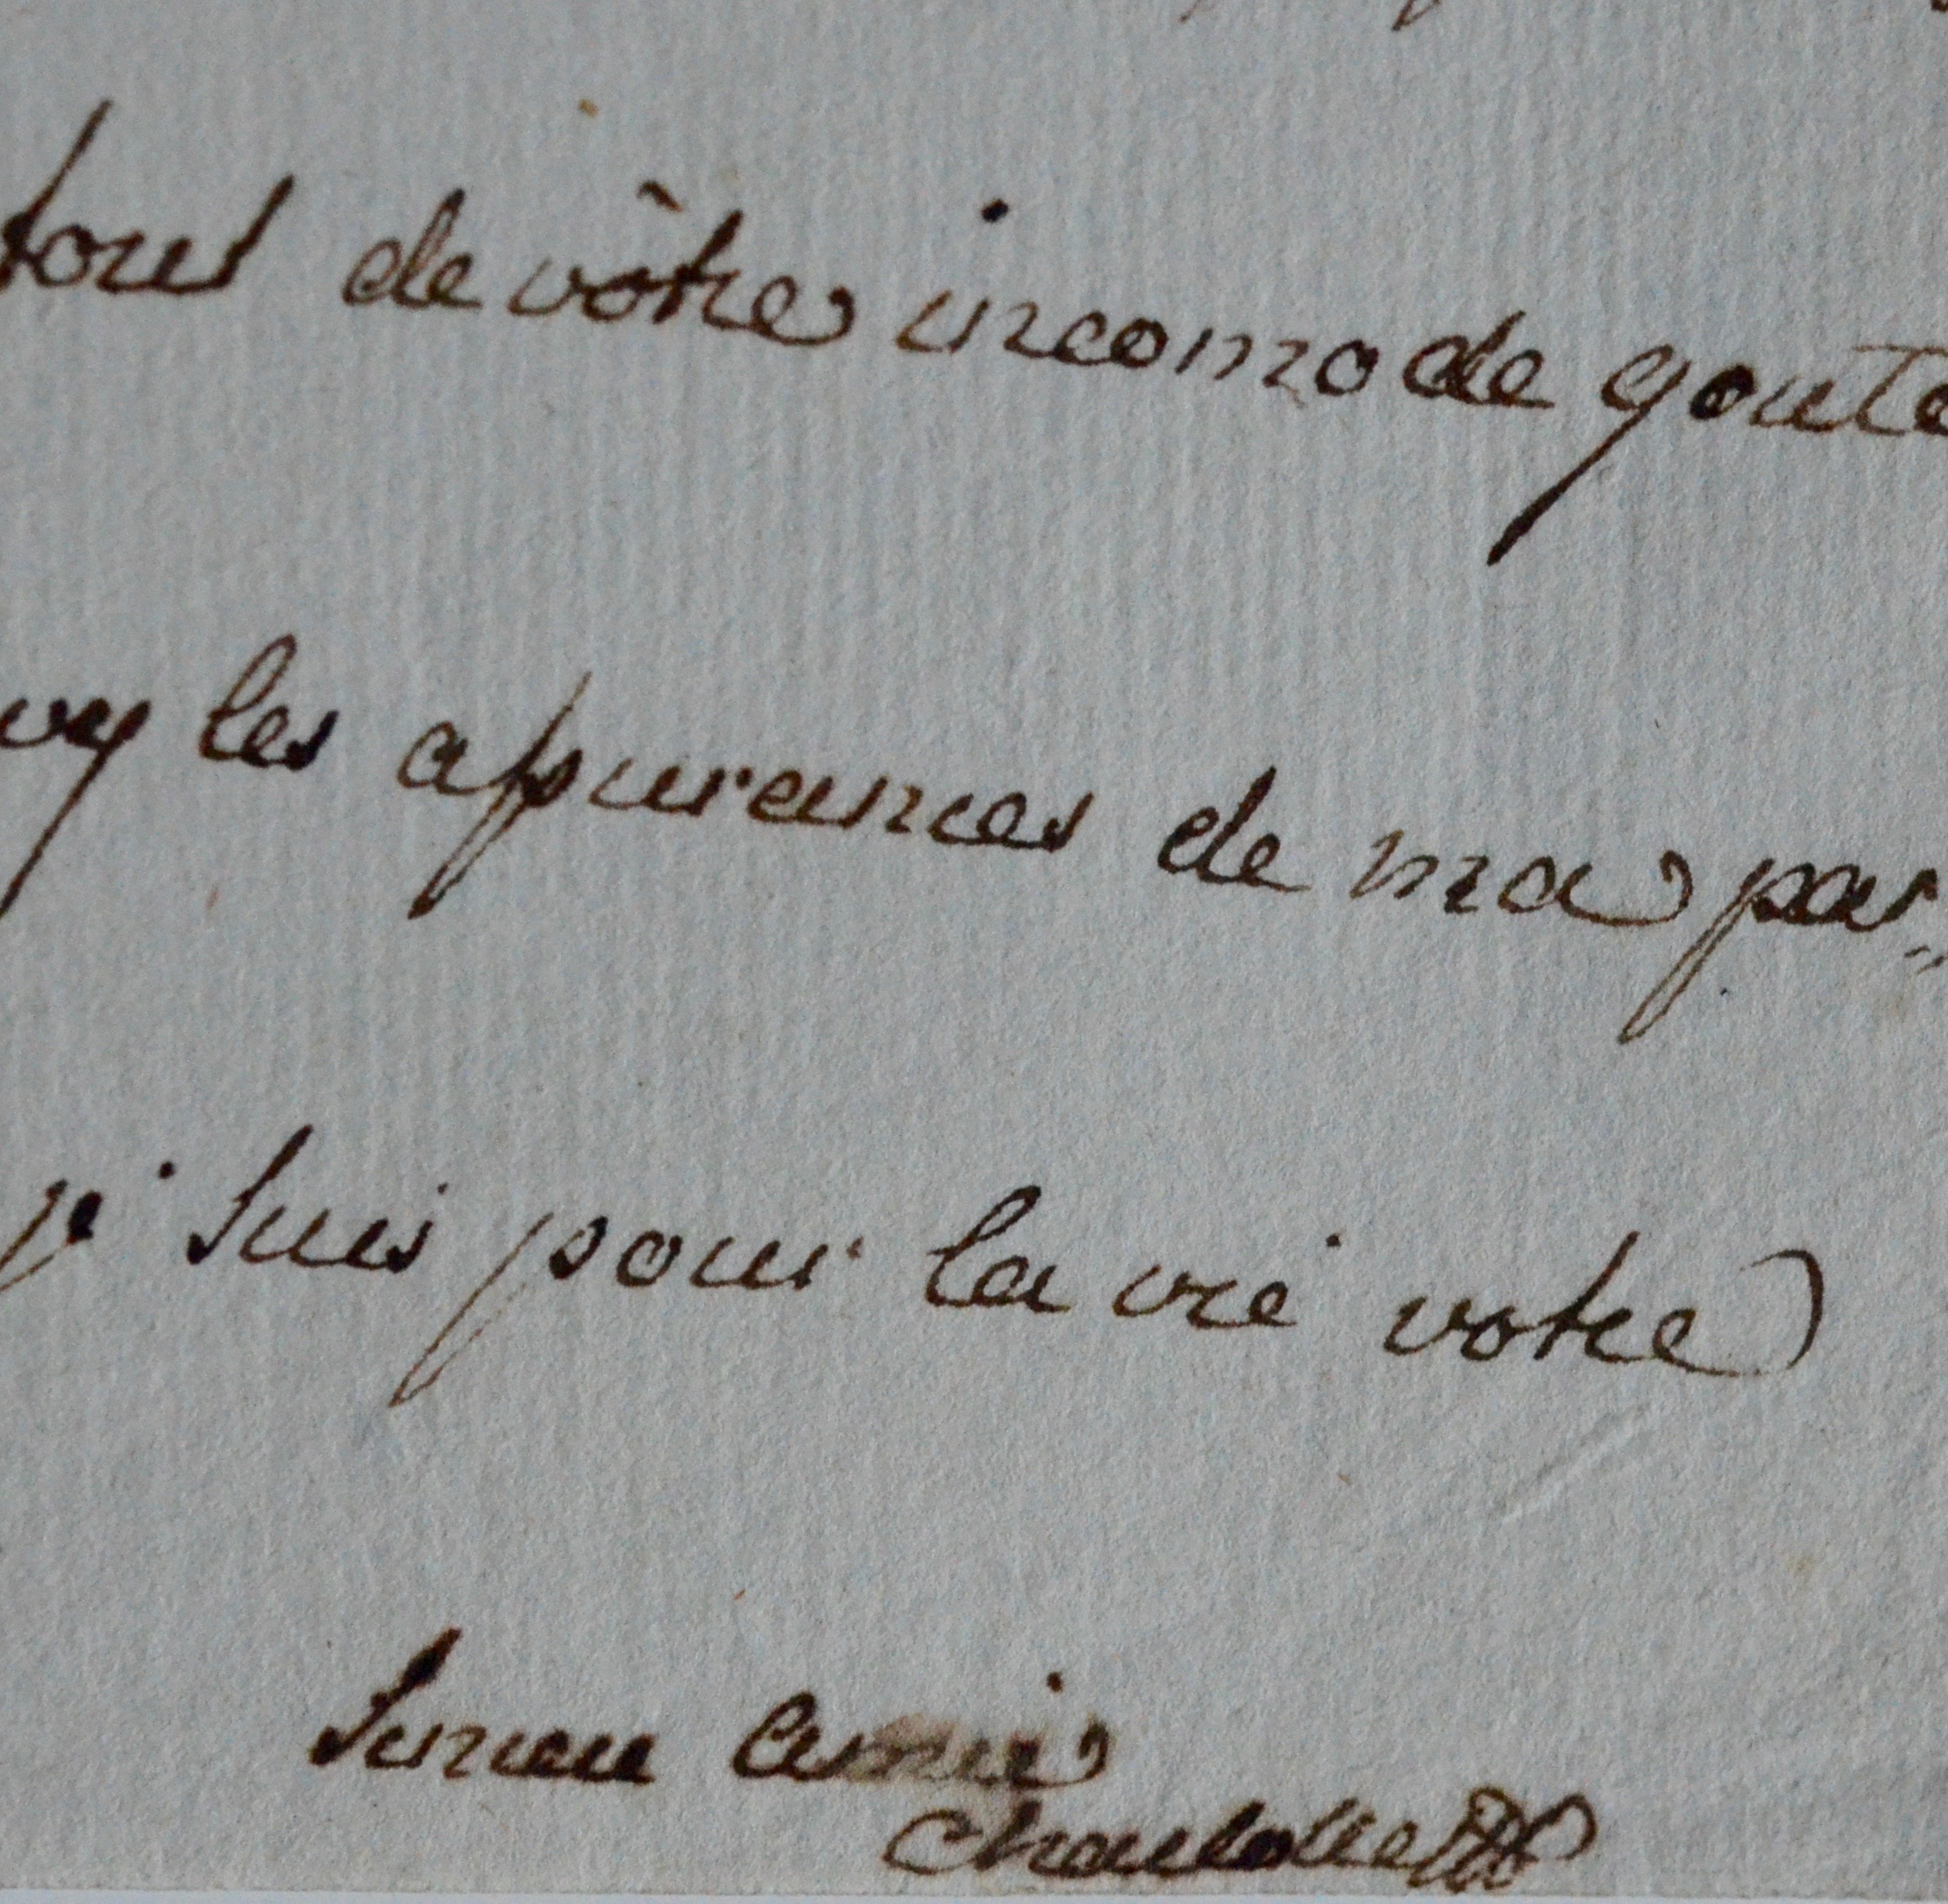 tous de vôtre incomode goute
uy les assurances de ma par„
je suis pour la vie votre
Sincere amie
Charlotte